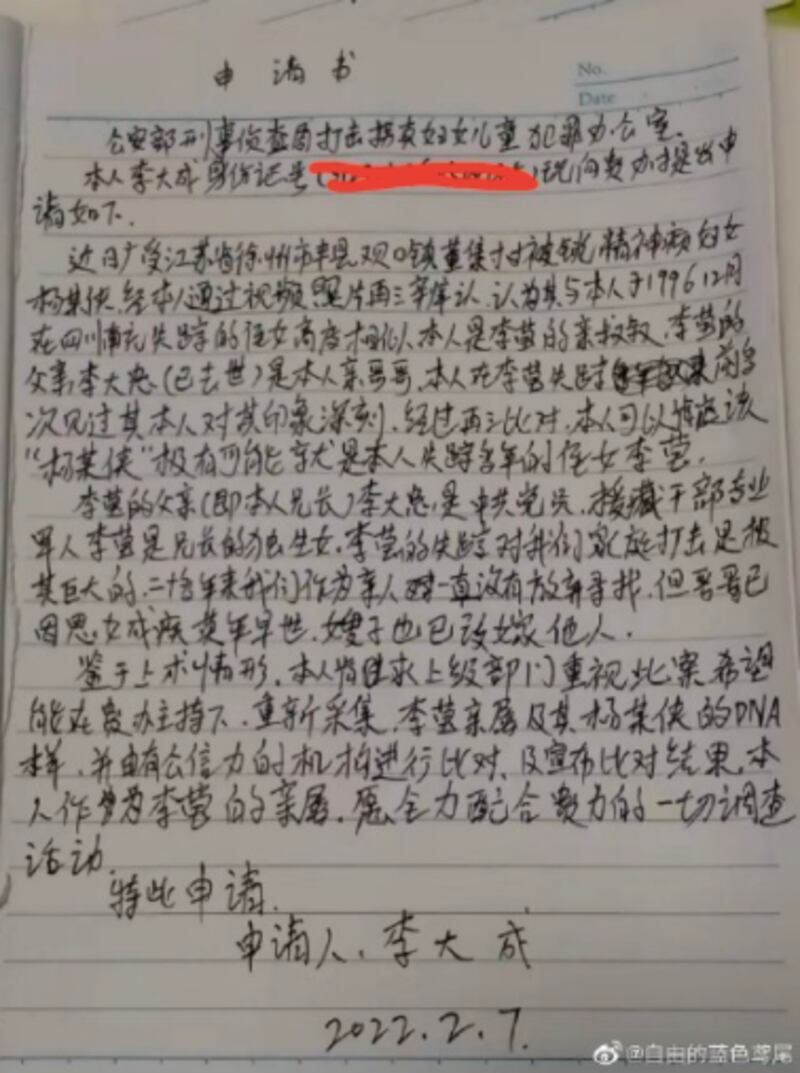 申请书
No.
Date
公安部刑事侦查局打击拐卖妇女儿童犯罪办公室.
本人李大成身份证号( ),现向贵办提出申
请如下.
近日广受江苏省徐州市丰县欢口镇董集村被锁精神病妇女
杨某侠,经本人通过视频照片再三辨认,认为其与本人于1996 12月
在四川南充失踪的侄女高度相似,本人是李莹的亲叔叔,李莹的
父亲李大忠(已去世)是本人亲哥哥,本人在李莹失踪 前多
次见过其本人对其印象深刻,经过再三比对,本人可以 该
“杨某侠”极有可能就是本人失踪多年的侄女李莹.
李莹的父亲(即本人兄长)李大忠,是中共党员,援藏干部专业
军人李莹是兄长的独生女,李莹的失踪对我们家庭打击是极
其巨大的,二十多年来我们作为亲人 一直没有放弃寻找,但哥哥已
因思女成疾英年早世,嫂子也已改嫁他人.
鉴于上术情形,本人 请求上级部门重视此案,希望
能在贵办主持下,重新采集,李莹亲属及其杨某侠的DNA
样,并由有公信力的机构进行比对,及宣布比对结果,本
人作 为李莹的亲属,愿全力配合贵方的一切调查
活动.
特此申请.
申请人、李大成
2022.2.7.
@自由的蓝色鸢尾